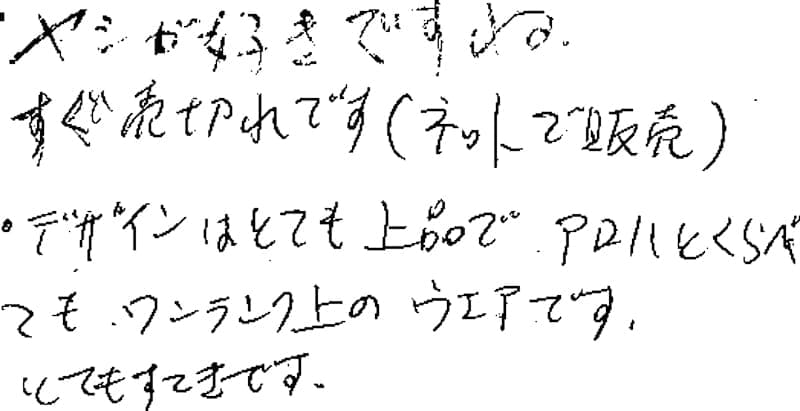 ・ヤシが好きですね.
すぐ売切れです(ネットで販売)
・デザインはとても上品で.アロハとくらべ
ても.ワンランク上のウエアです.
とてもすてきです.